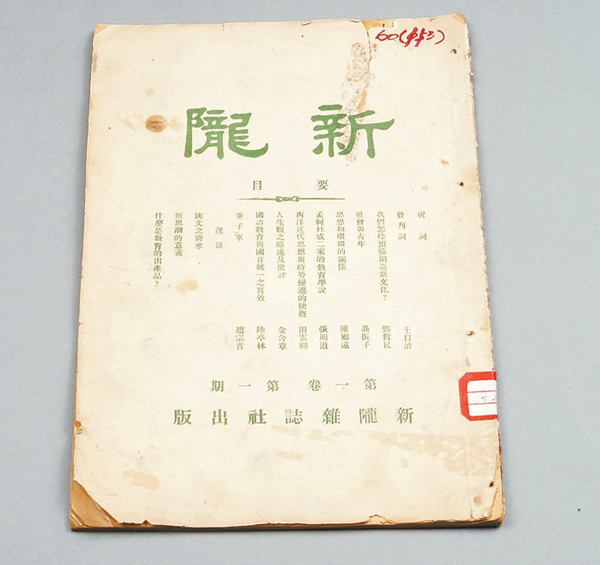 60(445)
新隴
要目
祝詞
發刊詞 王自治
我們怎樣預備創造新文化? 郭哲民
社會與青年 聶振子
思想和環境的關係 陳顧遠
孟柯杜威二家的教育學說 張明道
西洋近代思想與時勢變遷的梗概 田雲卿
人生觀之略述及批評 金含章
國語教育與國音統一之實效 陸亭林
童子軍 趙宗晉
選錄
國文之將來
新思潮的意義
什麼是教育的出產品?
第一卷 第一期
新隴雜誌社出版